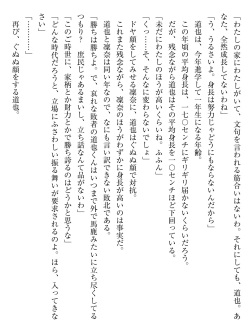 「わたしの家にわたしがいて、文句を言われる筋合いはないわ。それにしても、道也、あ
なた、全然成長しないわね」
「うるさいよ。身長は努力じゃどうにもならないんだから」
道也は、今年進学して一年生になる年齢。
この年頃の平均身長は、一一〇センチにギリギリ届かないくらいだろう。
だが、残念ながら道也はその平均身長を一〇センチほど下回っている。
「未だにわたしのほうが高いくらいね。ふふん」
「くっ……そ、そんなに変わらないでしょ」
ドヤ顔をしてみせる凜奈に、道也はぐぬぬ顔で対抗。
これまた残念ながら、凜奈のほうがわずかに身長が高いのは事実だ。
道也と凜奈は同い年なので、なにも言い訳できない敗北である。
「勝ちは勝ちよ。で、哀れな敗者の道也くんはいつまで外で馬鹿みたいに立ち尽くしてる
つもり？　庶民じゃあるまいし、立ち話なんて品がないわ」
「このご時世に、家柄とか財力とかで勝ち誇るのはどうかと思うな」
「どんな時代だろうと、立場にふさわしい振る舞いが要求されるのよ。ほら、入ってきな
さい」
「…………」
再び、ぐぬぬ顔をする道也。